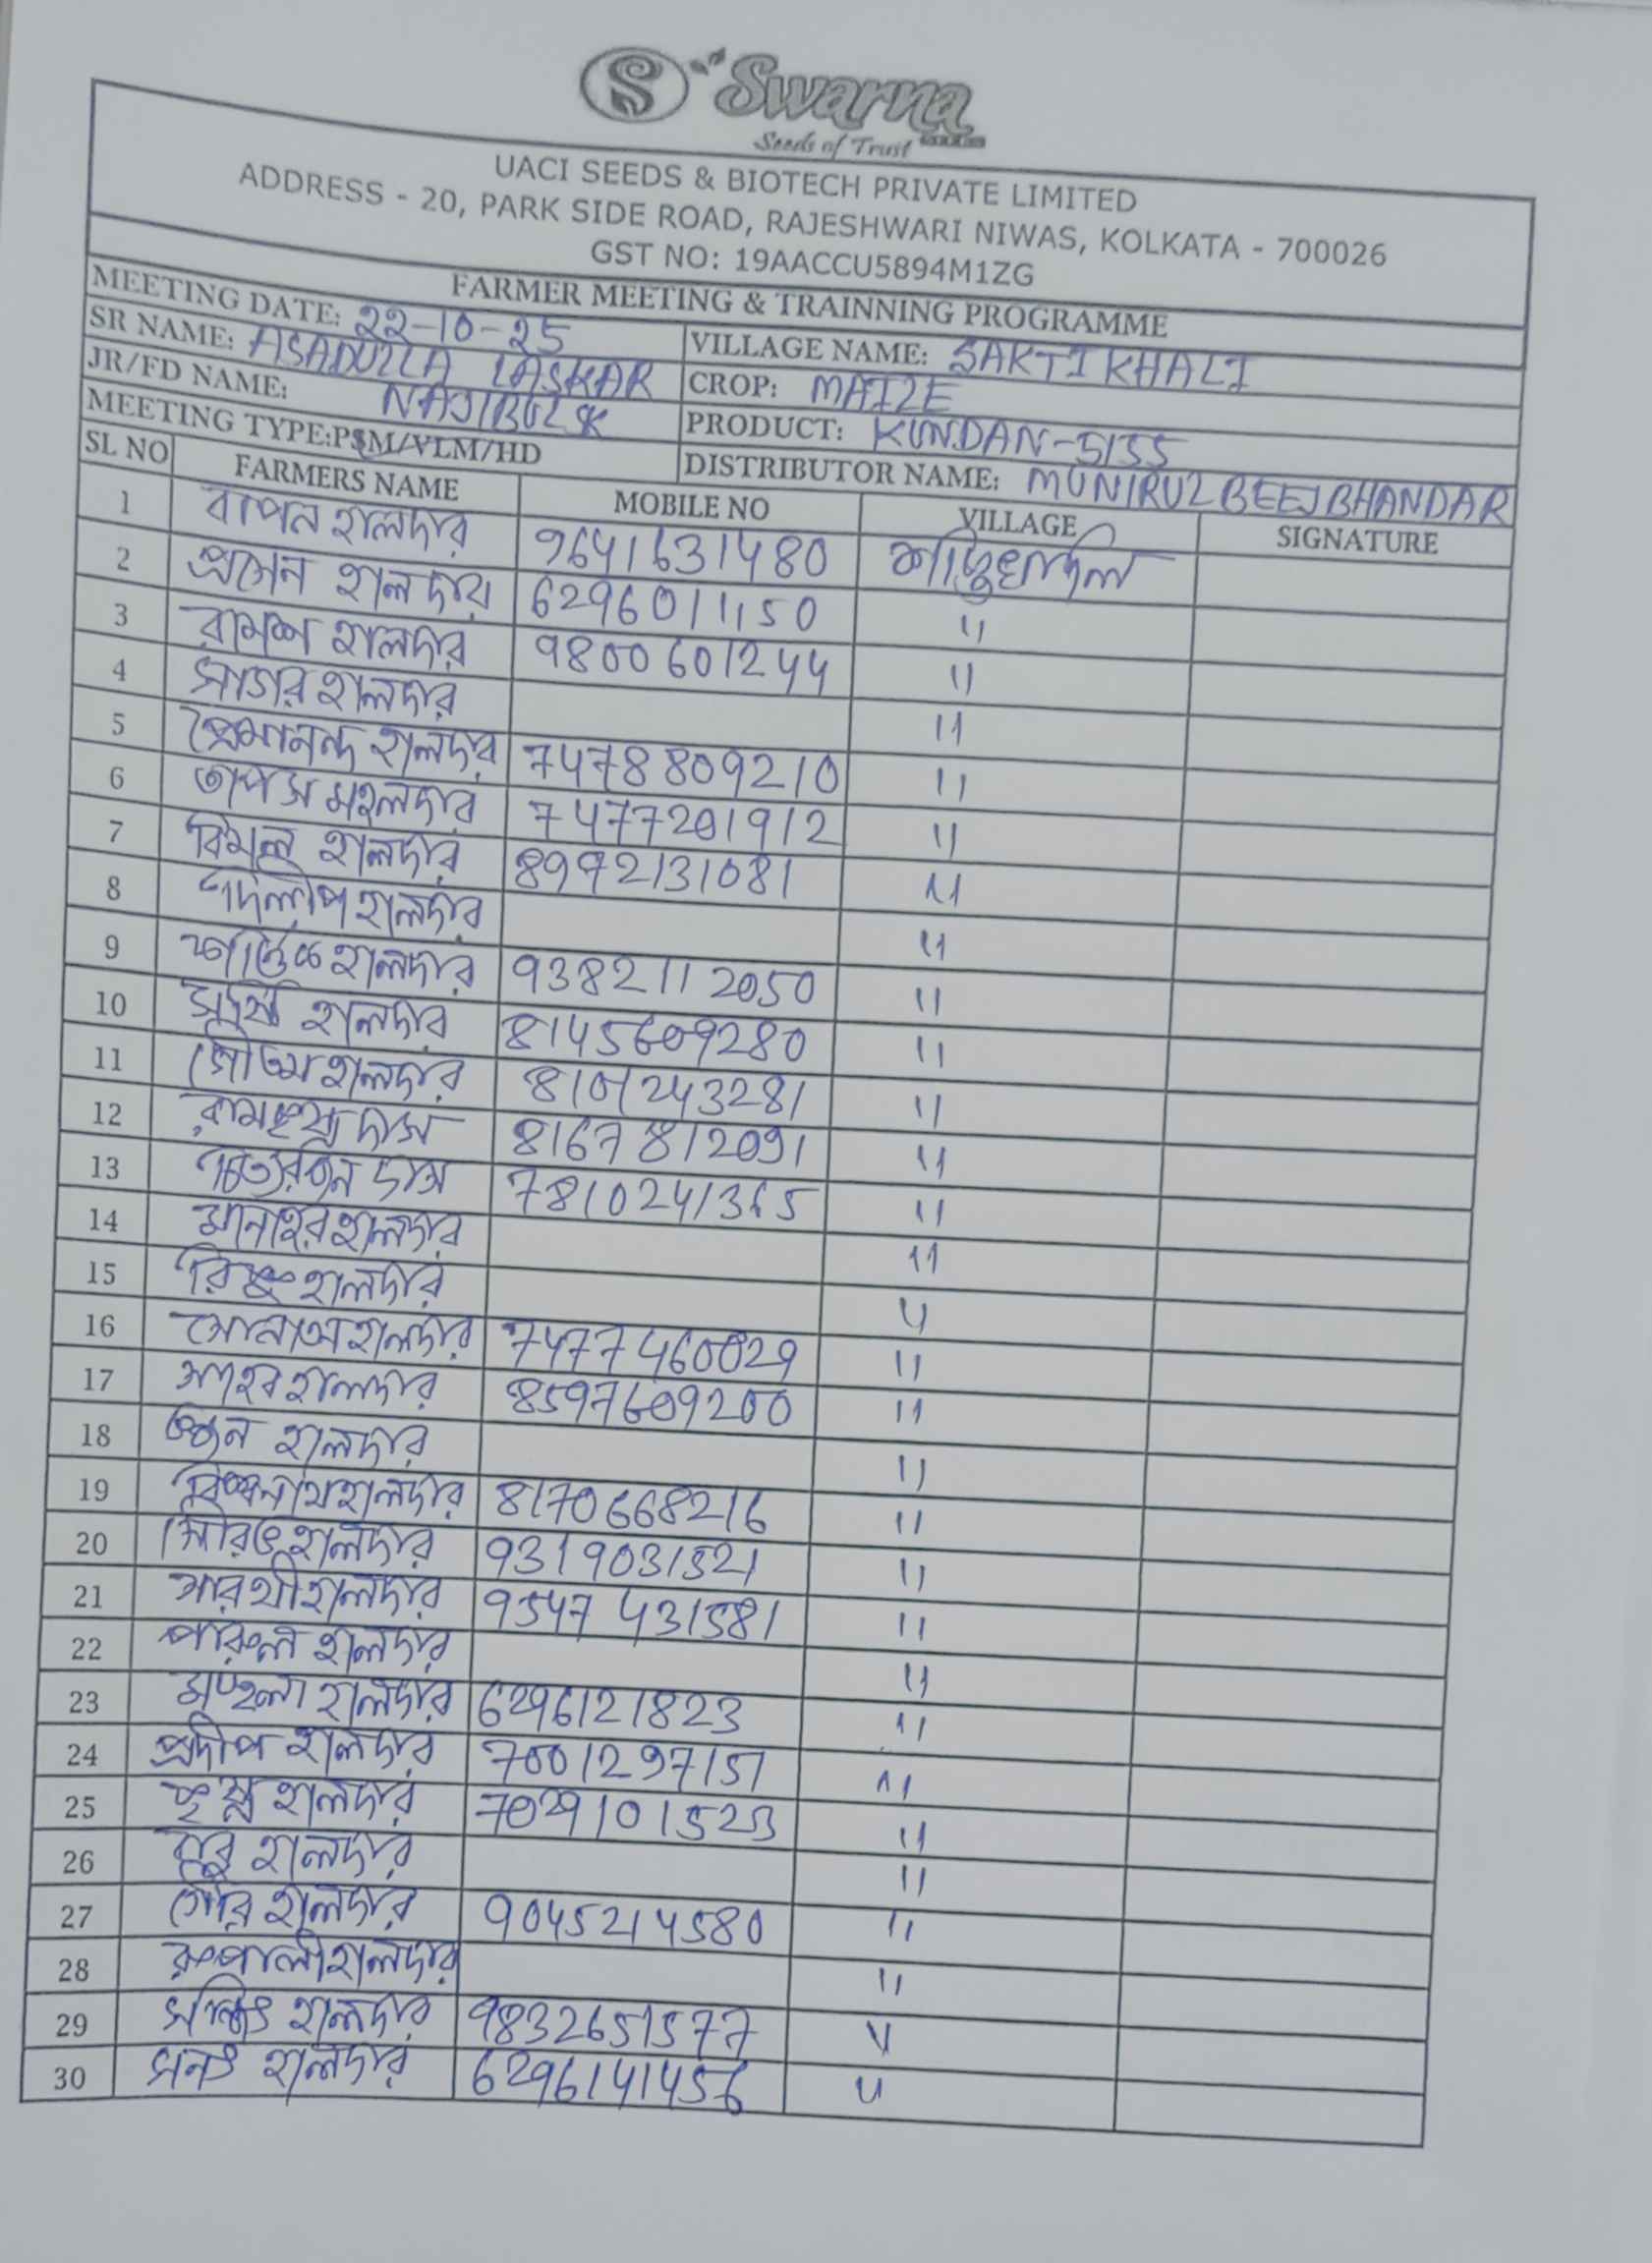 S Swarna
Seeds of Trust
UACI SEEDS & BIOTECH PRIVATE LIMITED
ADDRESS - 20, PARK SIDE ROAD, RAJESHWARI NIWAS, KOLKATA - 700026
GST NO: 19AACCU5894M1ZG
FARMER MEETING & TRAINNING PROGRAMME
MEETING DATE: 22-10-25 VILLAGE NAME: SAKTIKHALI
SR NAME: ASADULLA LASKAR CROP: MAIZE
JR/FD NAME: NAJIBUL SK PRODUCT: KUNDAN-5155
MEETING TYPE:PSM/VLM/HD DISTRIBUTOR NAME: MUNIRUL BEEJ BHANDAR
SL NO FARMERS NAME MOBILE NO VILLAGE SIGNATURE
1 বাপন হালদার 9641631480
2 প্রসেন হালদার 6296011150 11
3 রমেশ হালদার 9800601244 11
4 সাগর হালদার 11
5 প্রেমানন্দ হালদার 7478809210 11
6 তাপস মহলদার 7477201912 11
7 বিমল হালদার 8972131081 11
8 দিলীপ হালদার 11
9 কার্ত্তিক হালদার 9382112050 11
10 হালদার 8145609280 11
11 গৌতম হালদার 8101243281 11
12 রামকৃষ্ণ দাস 8167812091 11
13 চিত্তরঞ্জন দাস 7810241365 11
14 মনোহর হালদার 11
15 হালদার 11
16 হালদার 7477460029 11
17 হালদার 8597609200 11
18 হালদার 11
19 বিশ্বনাথ হালদার 8170668216 11
20 সৌরভ হালদার 9319031521 11
21 সারথী হালদার 9547431581 11
22 পারুল হালদার 11
23 হালদার 6296121823 11
24 প্রদীপ হালদার 7001297151 11
25 কৃষ্ণ হালদার 7029101523 11
26 হালদার 11
27 গৌর হালদার 9045214580 11
28 রুপালী হালদার 11
29 হালদার 9832651577 11
30 সনৎ হালদার 6296141456 11